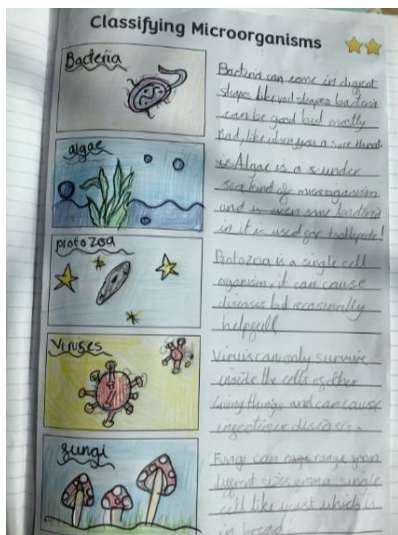 Classifying Microorganisms
Bacteria
Bacteria can come in diffrent
shapes like rod shapes bacteria
can be good but mostly
Bad, like when you a sore throat
algae
Algae is a under
sea kind of microorganism
and is even some bacteria
in it is used for toothpaste!
protozoa
Protozoa is a single cell
organism, it can cause
diseases but occasionally
helpfull
Viruses
Virus can only survive
inside the cells of other
living things and can cause
infectious diseases.
fungi
Fungi can range from
diffrent sizes from a single
cell like yeast which is
in bread.